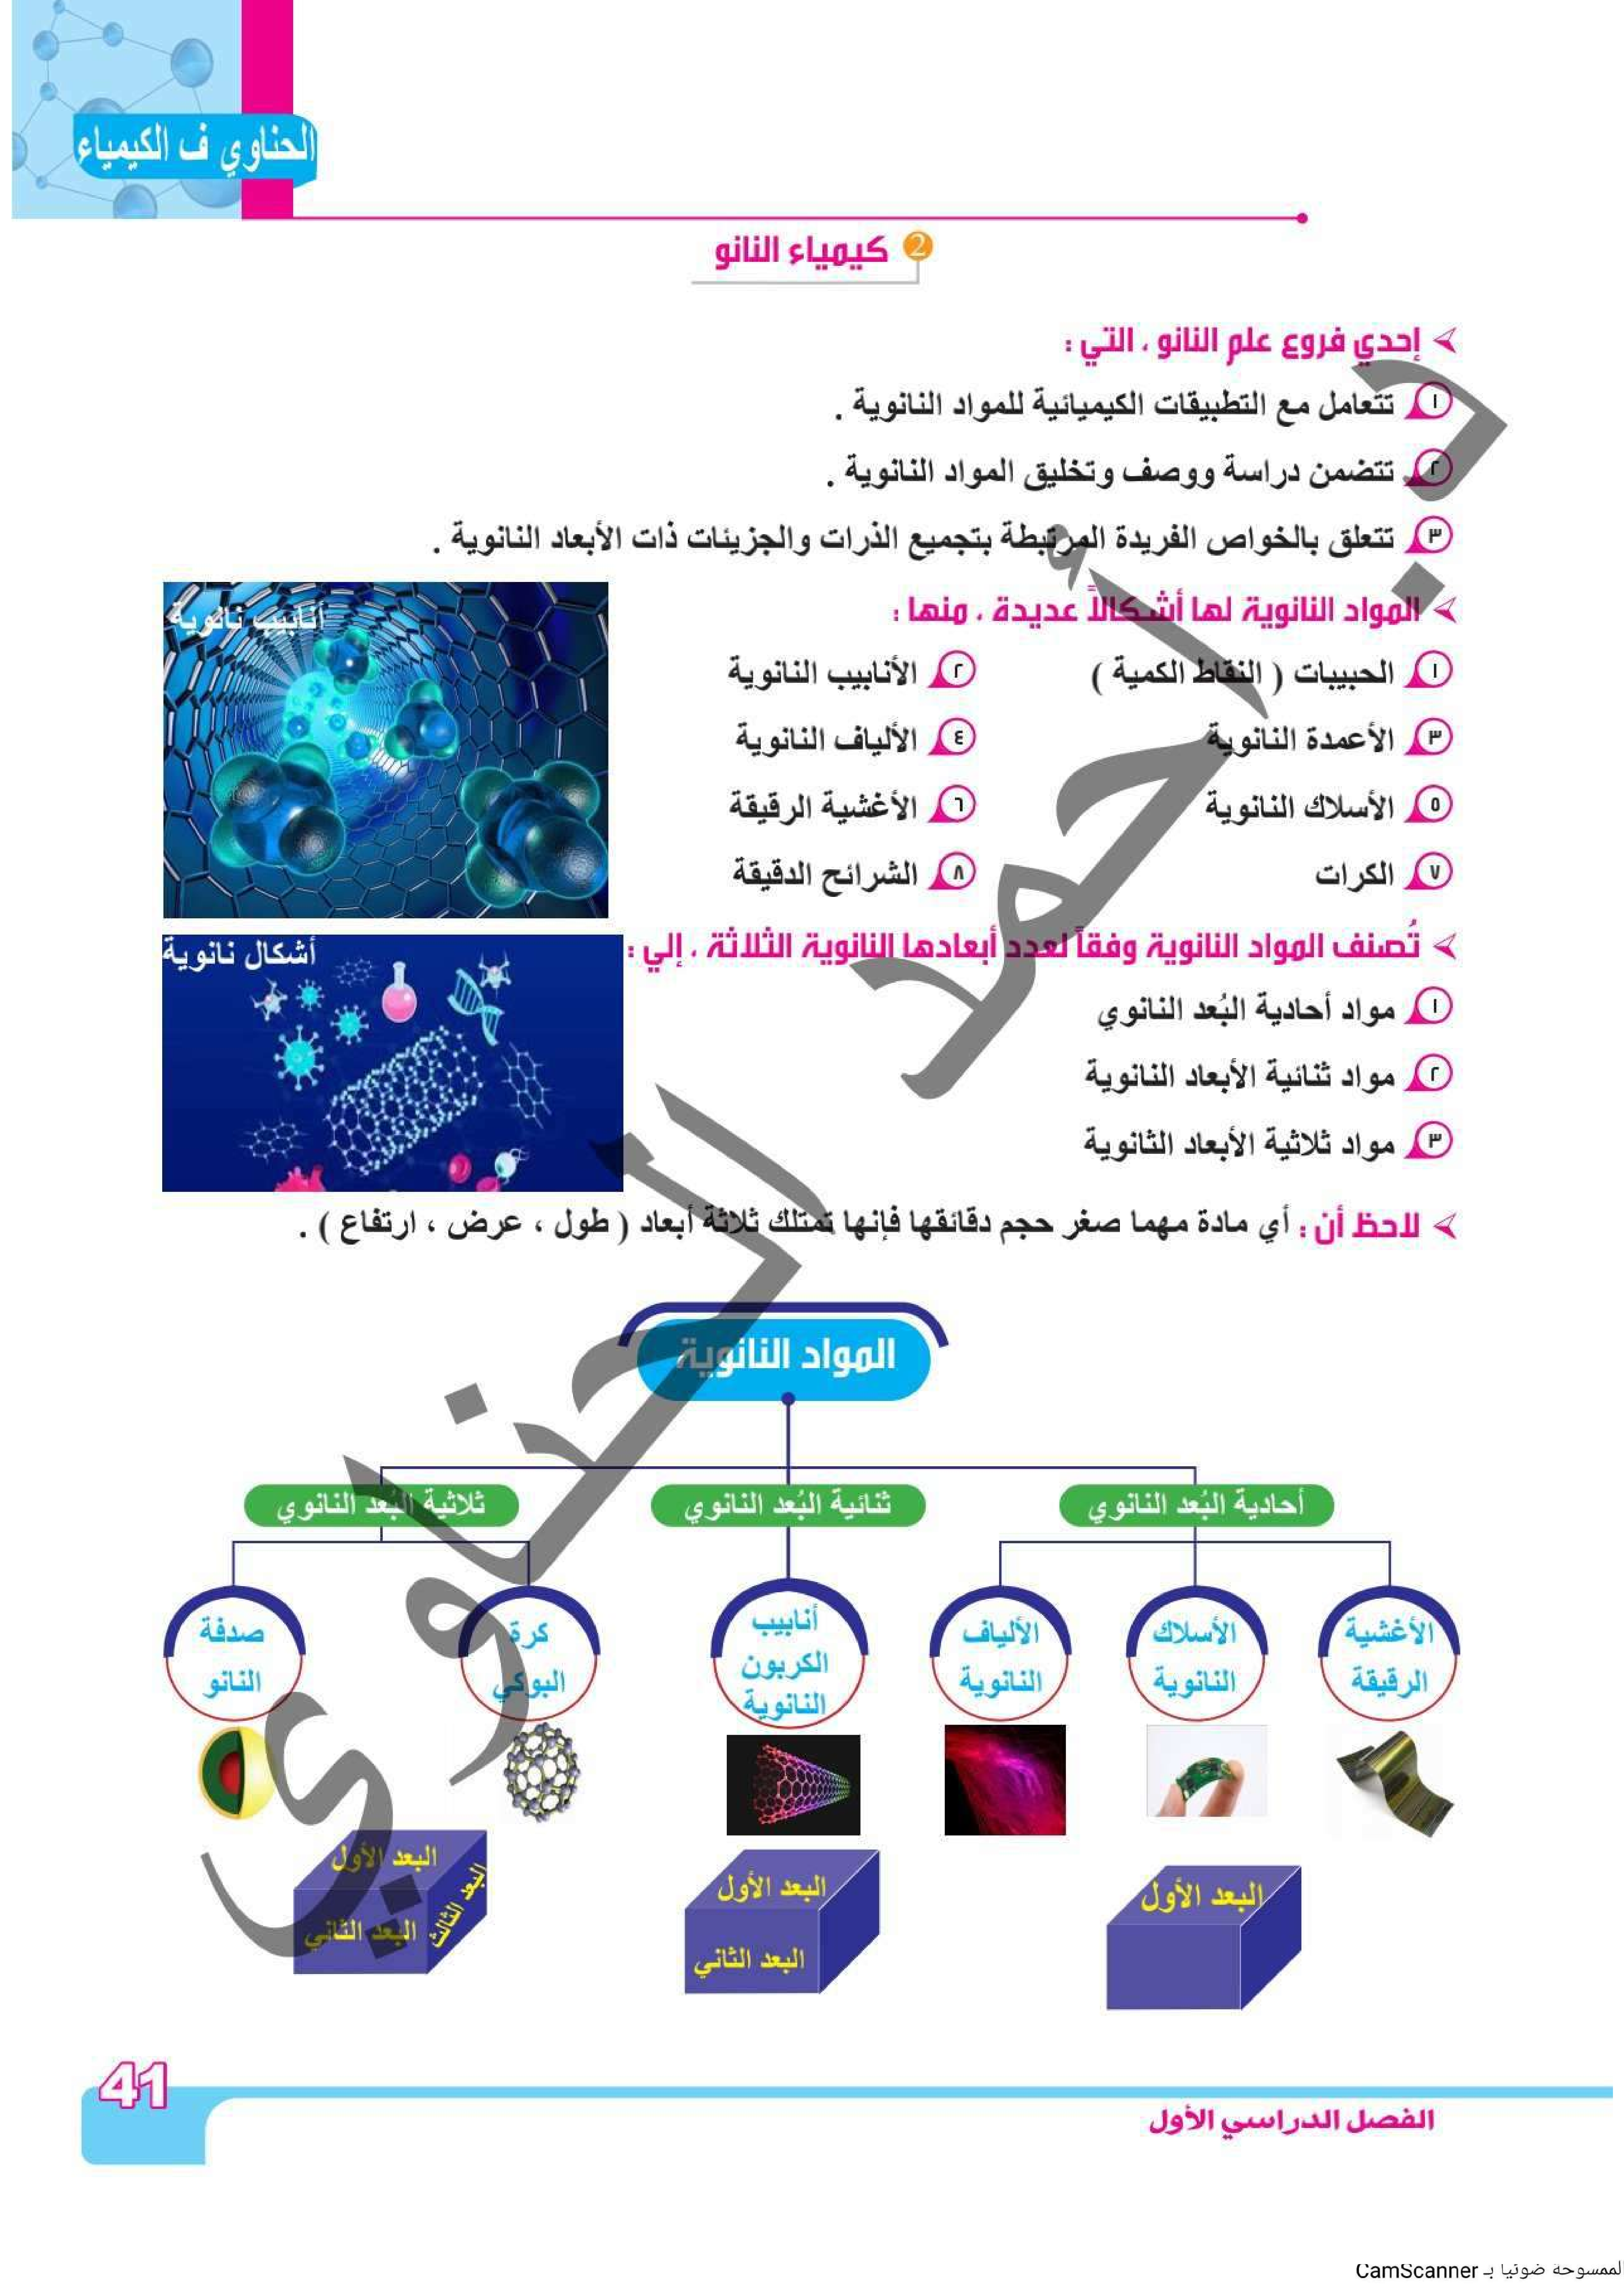 الحناوي ف الكيمياء
2 كيمياء النانو
إحدي فروع علم النانو ، التي :
١ تتعامل مع التطبيقات الكيميائية للمواد النانوية .
٢ تتضمن دراسة ووصف وتخليق المواد النانوية .
٣ تتعلق بالخواص الفريدة المرتبطة بتجميع الذرات والجزيئات ذات الأبعاد النانوية .
المواد النانوية لها أشكالاً عديدة ، منها :
١ الحبيبات ( النقاط الكمية )
٢ الأنابيب النانوية
٣ الأعمدة النانوية
٤ الألياف النانوية
٥ الأسلاك النانوية
٦ الأغشية الرقيقة
٧ الكرات
٨ الشرائح الدقيقة
أنابيب نانوية
تُصنف المواد النانوية وفقاً لعدد أبعادها النانوية الثلاثة ، إلي :
١ مواد أحادية البُعد النانوي
٢ مواد ثنائية الأبعاد النانوية
٣ مواد ثلاثية الأبعاد الثانوية
أشكال نانوية
لاحظ أن : أي مادة مهما صغر حجم دقائقها فإنها تمتلك ثلاثة أبعاد ( طول ، عرض ، ارتفاع ) .
المواد النانوية
أحادية البُعد النانوي
ثنائية البُعد النانوي
ثلاثية البُعد النانوي
الأغشية
الرقيقة
الأسلاك
النانوية
الألياف
النانوية
أنابيب
الكربون
النانوية
كرة
البوكي
صدفة
النانو
البعد الأول
البعد الأول
البعد الثاني
البعد الأول
البعد الثاني
البعد الثالث
أ. أحمد الحناوي
41
الفصل الدراسي الأول
لممسوحة ضوئيا بـ CamScanner